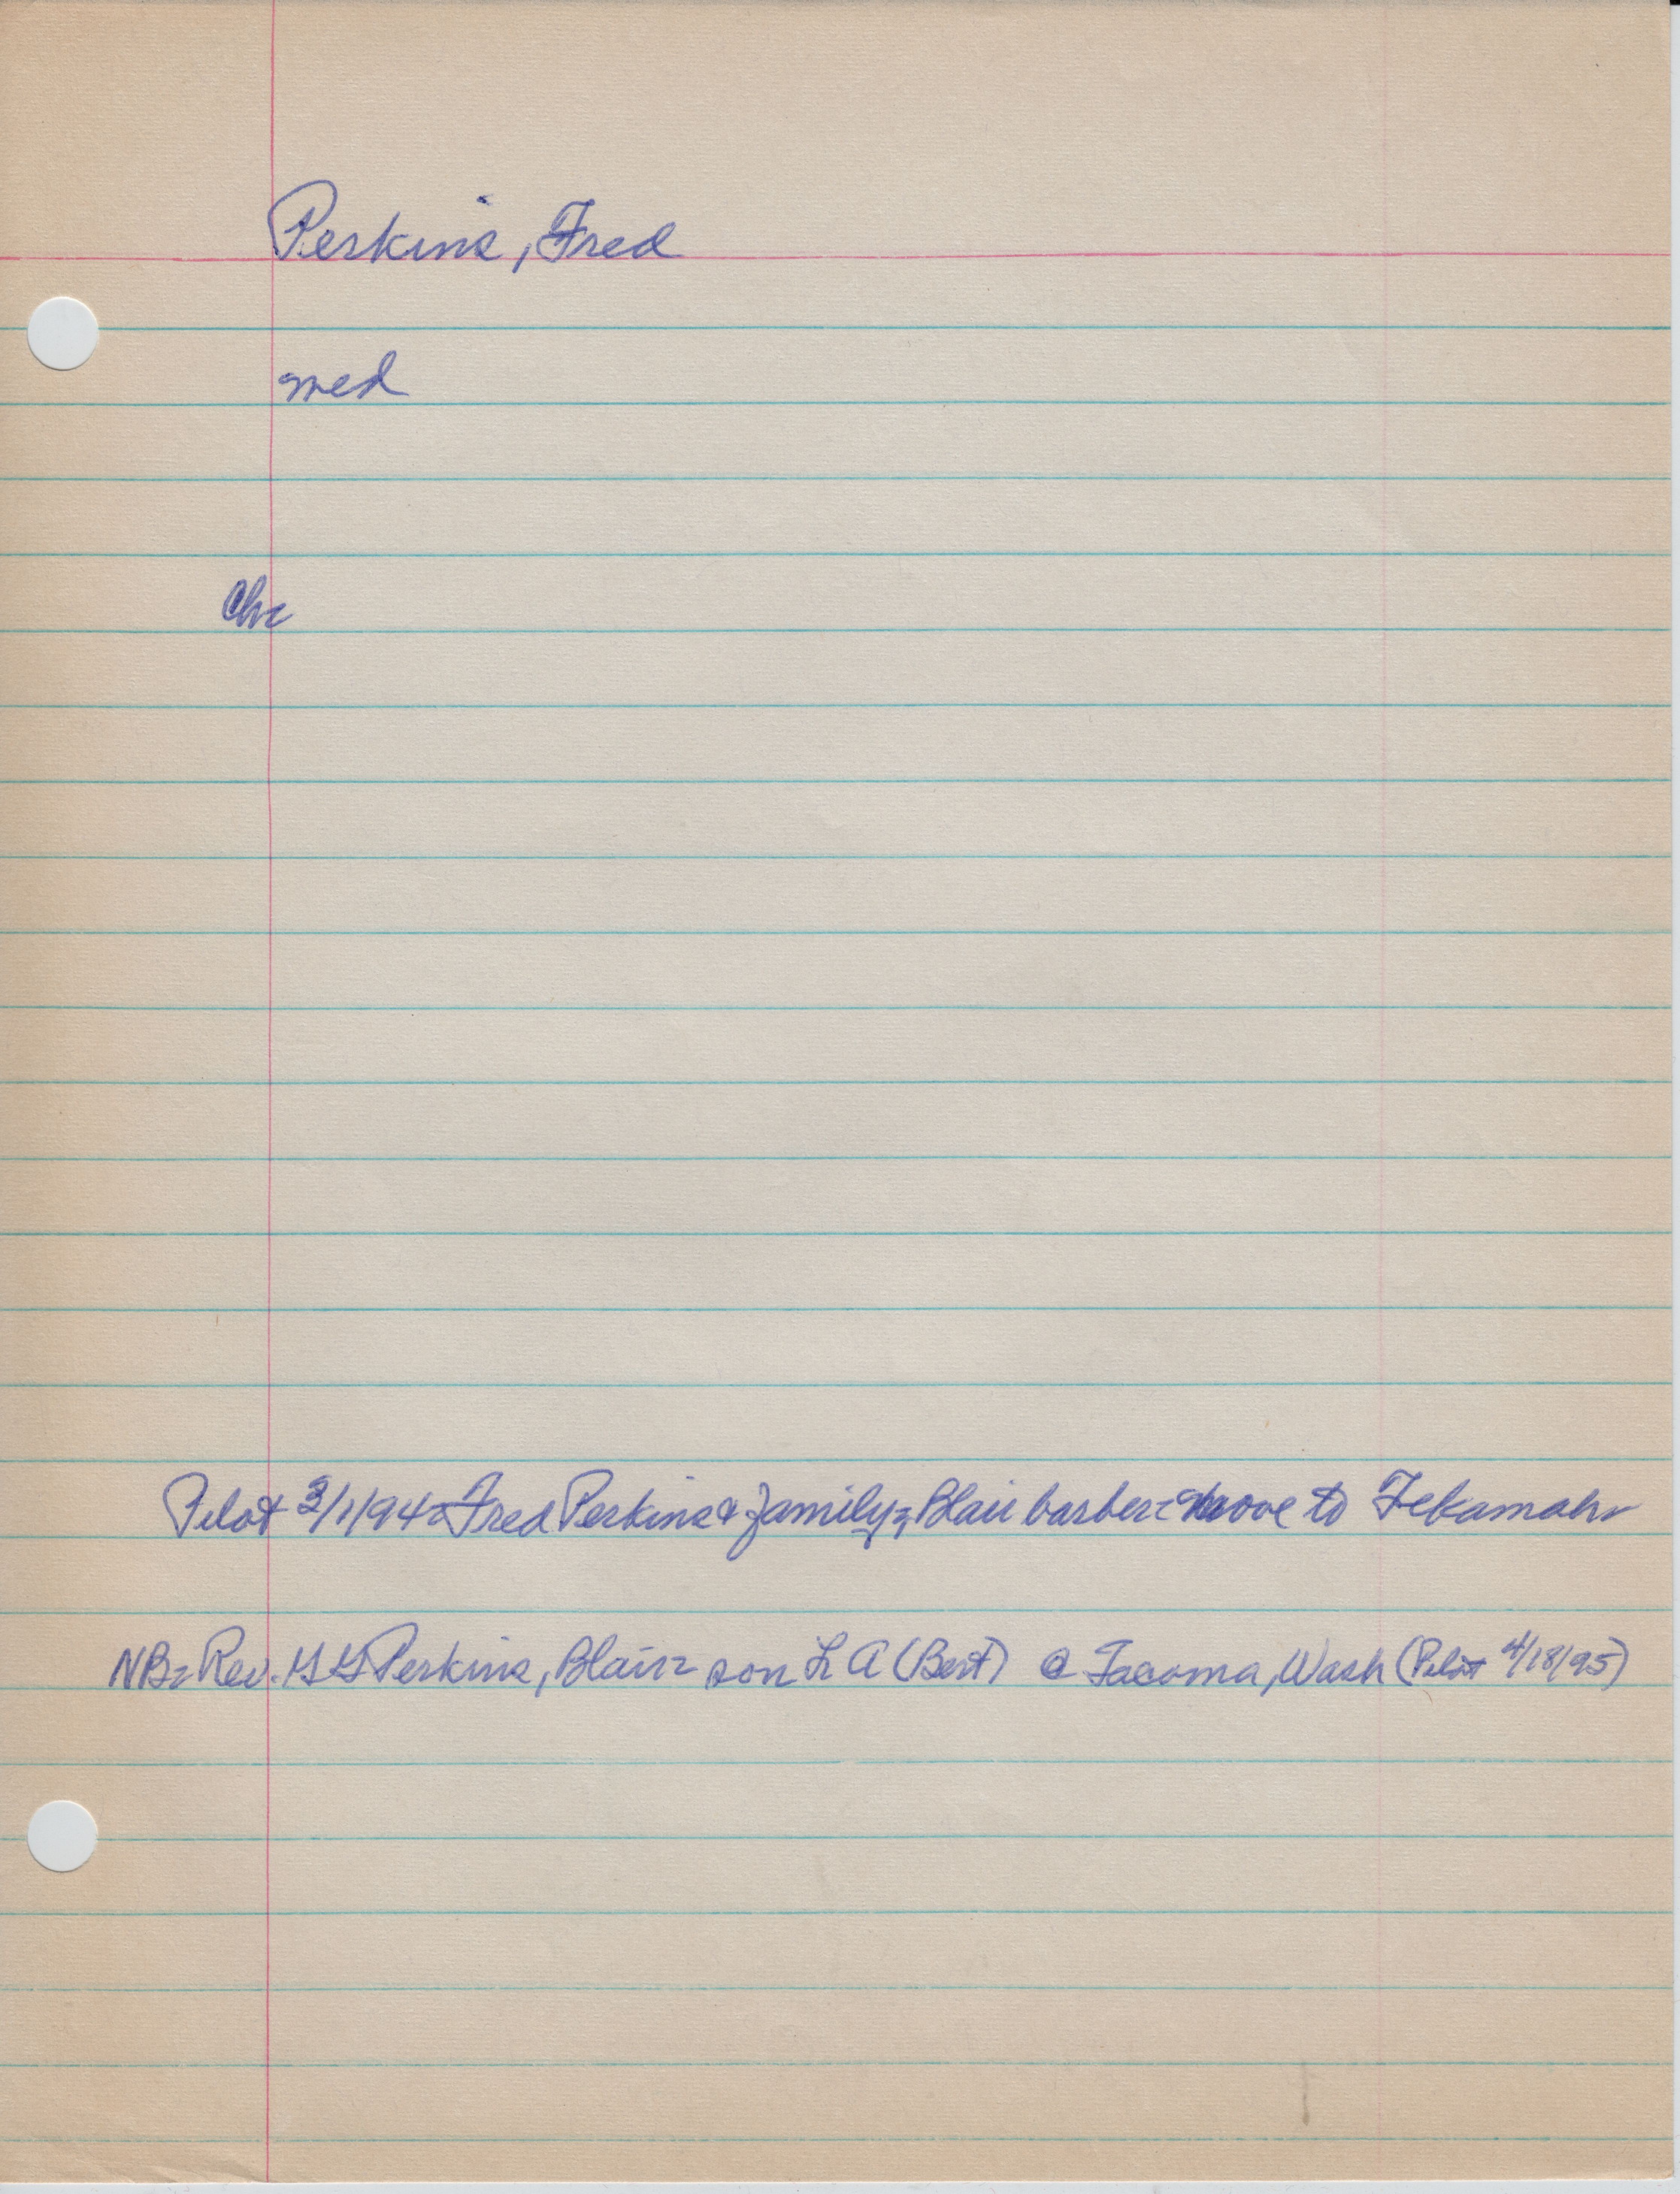 Perkins, Fred
med
Chr
Pilot 3/1/94= Fred Perkins & family= Blair barber= move to Tekamah
NB= Rev. G G Perkins, Blair= son L A (Bert) @ Tacoma, Wash (Pilot 4/18/95)